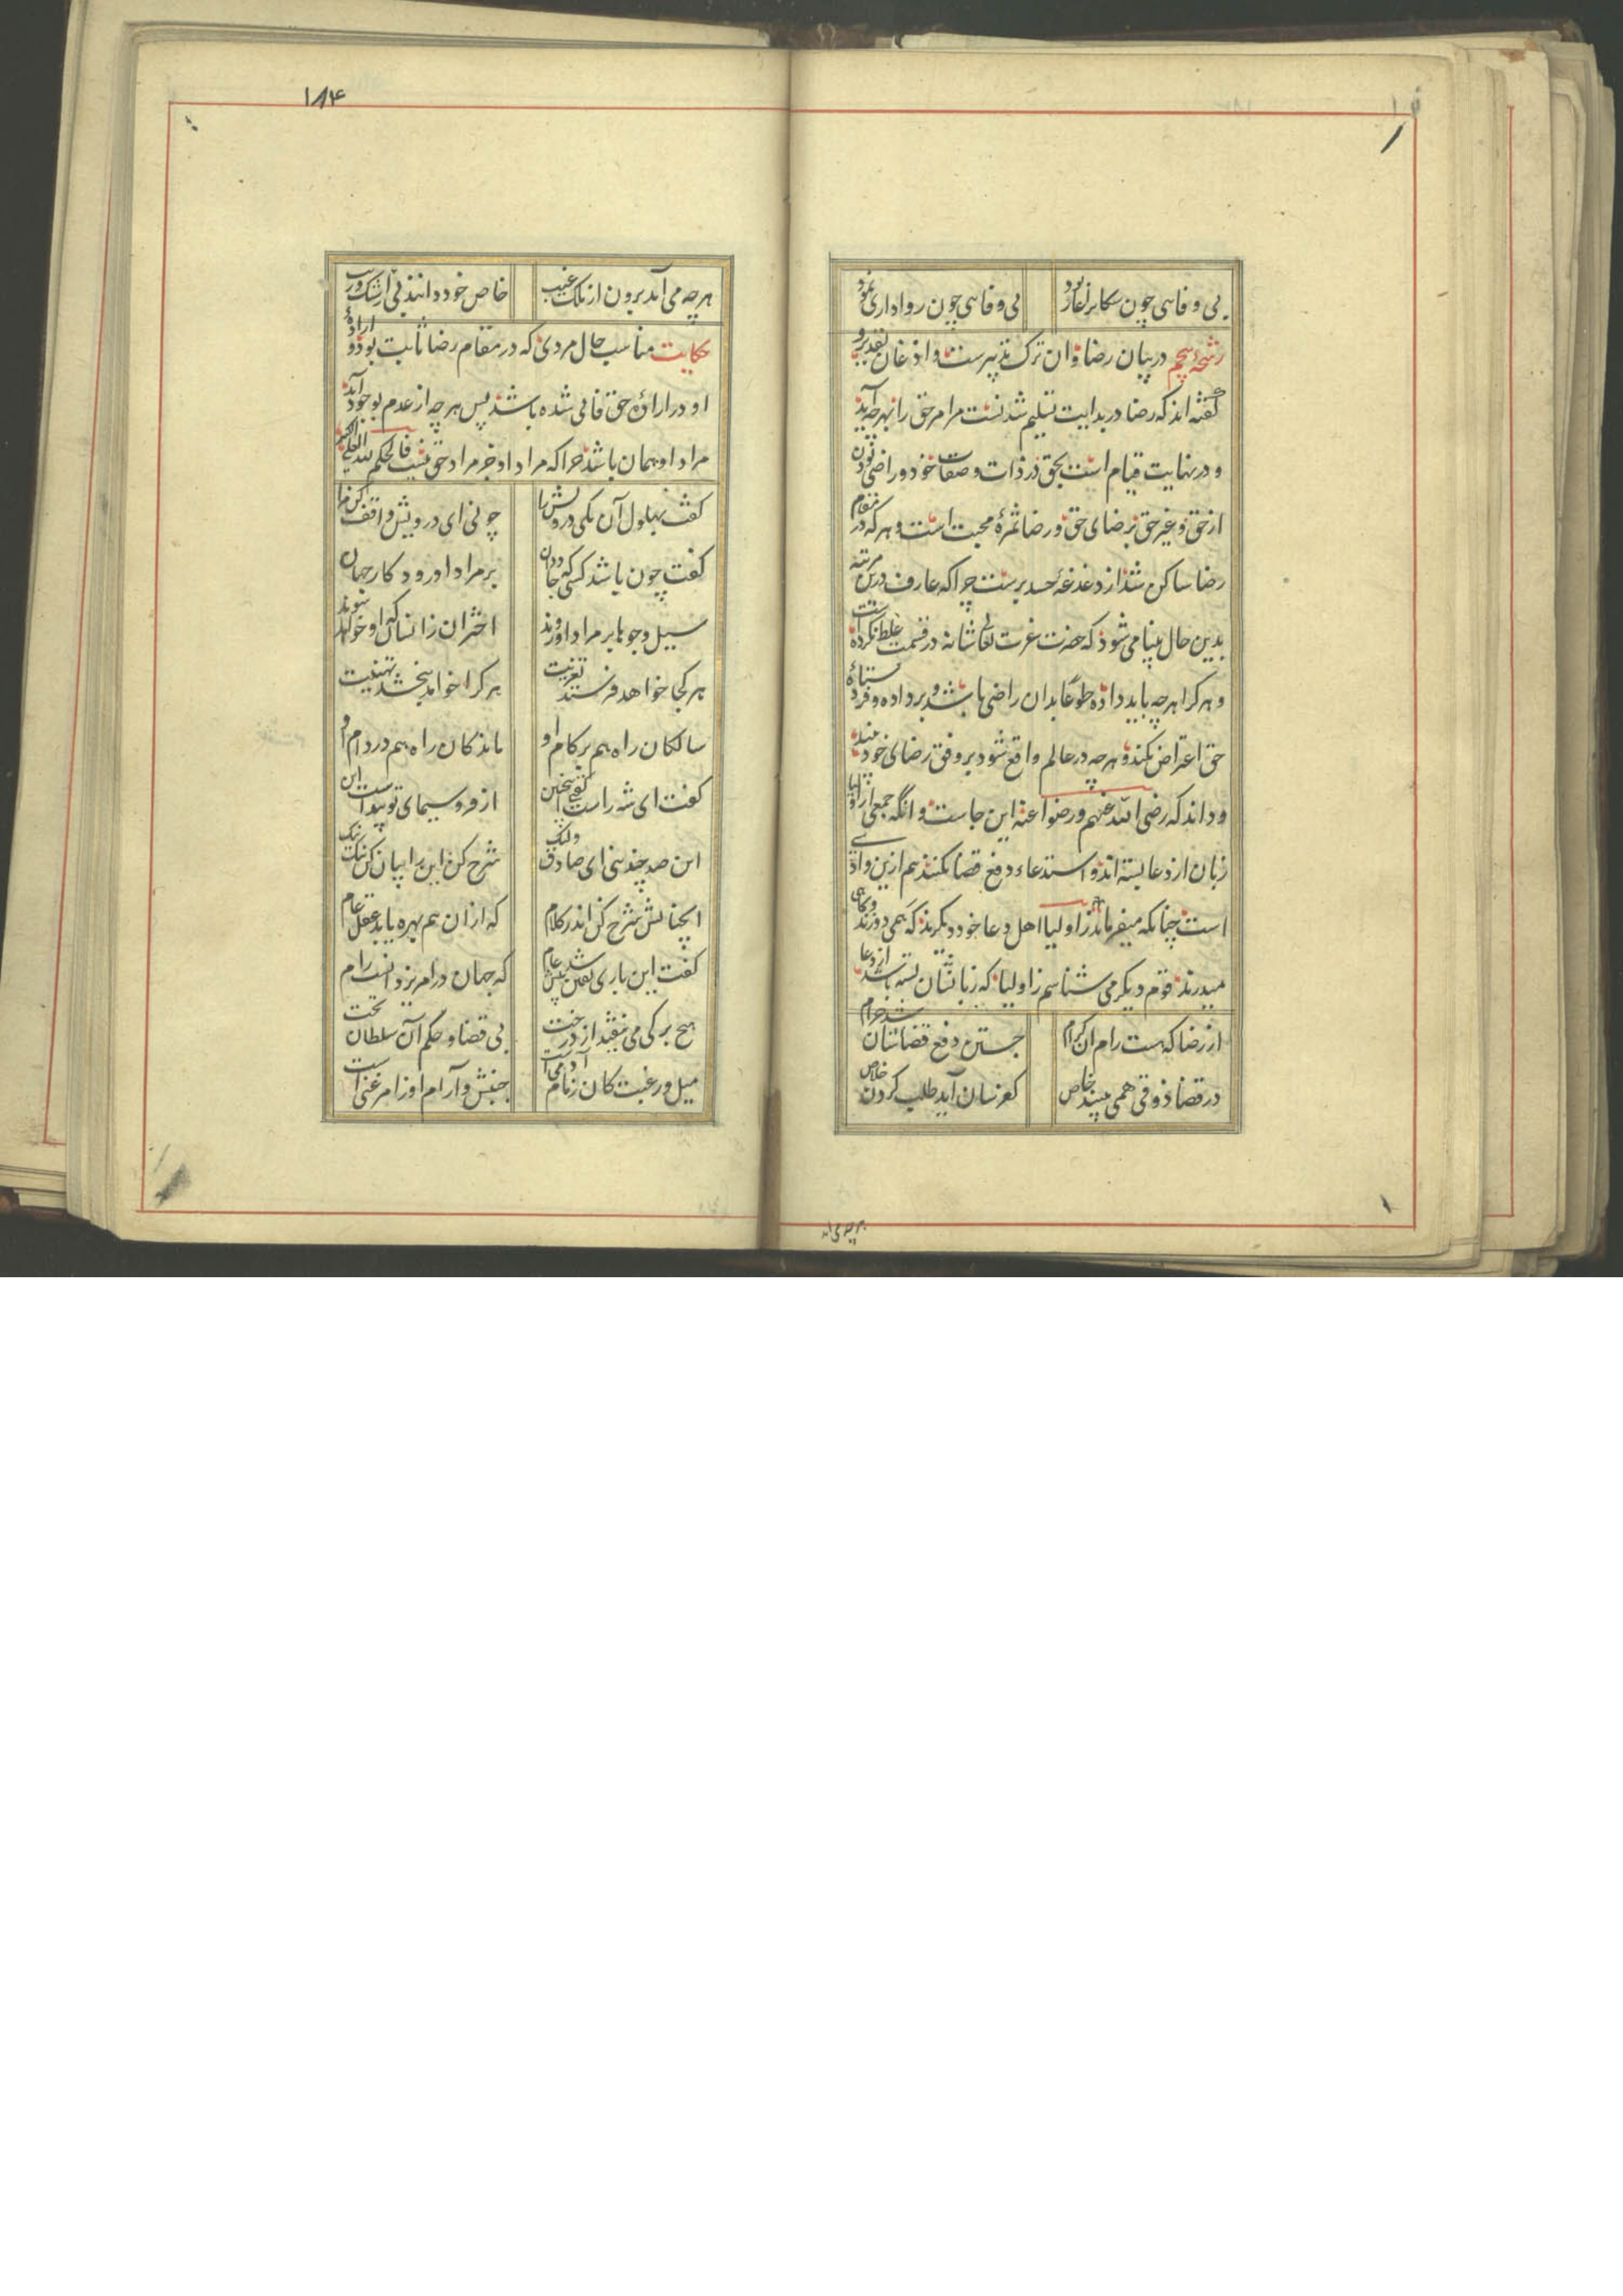 بی وفایی چون سگانرا عار بود
بی وفایی چون رواداری نمود
رشحهٔ پنجم در بیان رضا و آن ترک تدبیرست و اذعان تقدیر و
گفته اند که رضا در بدایت تسلیم شدنست مر امر حق را بهر چه آید
و در نهایت قیام است بحق در ذات و صفات خود و راضی بودن
از حق و غیر حق برضای حق و رضا ثمرهٔ محبت است و هر که در مقام
رضا ساکن شد از دغدغهٔ حسد برست چرا که عارف درین مرتبه
بدین حال بینا می شود که حضرت عزت تعالی شانه در قسمت غلط نکرده است
و هر کرا هر چه باید داده طوعا بدان راضی باشد و بر داده و فرستادهٔ
حق اعتراض نکند و هر چه در عالم واقع شود بر وفق رضای خود بیند
و داند که رضی الله عنهم و رضوا عنه این جاست و انگه جمعی از اولیا
زبان از دعا بسته اند و استدعاء دفع قضا نکنند هم ازین وادی
است چنانکه میفرماید ز اولیا اهل دعا خود دیگرند که همی دوزند و گاهی
میدرند قوم دیگر می شناسم ز اولیا که زبانشان بسته باشد از دعا
از رضا که هست رام آن کرام
جستن دفع قضاشان شد حرام
در قضا ذوقی همی بینند خاص
کفرشان آید طلب کردن خلاص
۱۸۴
هر چه می آید برون از ملک غیب
خاص خود دانند بی از شک و ریب
حکایت مناسب حال مردی که در مقام رضا ثابت بود و ارادهٔ
او در ارادهٔ حق فانی شده باشد پس هر چه از عدم بوجود آید
مراد او همان باشد چرا که مراد او جز مراد حق نیست فالحکم لله العلی الکبیر
گفت بهلول آن یکی درویش را
چونی ای درویش واقف کن مرا
گفت چون باشد کسی که جاودان
بر مراد او رود کار جهان
سیل و جوها بر مراد او روند
اختران زانسان که او خواهد شوند
هر کجا خواهد فرستد تعزیت
هر کرا خواهد ببخشد تهنیت
سالکان راه هم بر کام او
ماندکان راه هم در دام او
گفت ای شه راست گفتی همچنین
از فر و سیمای تو پیداست این
این صد چندینی ای صادق ولیک
شرح کن این را بیان کن نیک نیک
انچنانش شرح کن اندر کلام
که از آن هم بهره یابد عقل عام
گفت این باری یقین شد پیش عام
که جهان در امر یزدانست رام
هیچ برگی می نیفتد از درخت
بی قضا و حکم آن سلطان تخت
میل و رغبت کان زمام آدمی است
جنبش و آرام او ز امر غنی است